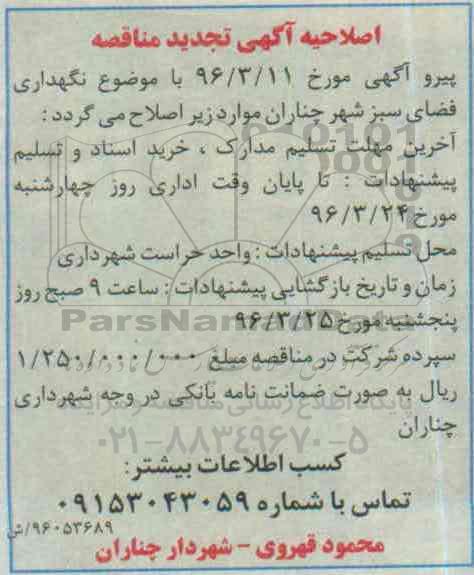 اصلاحیه آگهی تجدید مناقصه
پیرو آگهی مورخ ۹۶/۳/۱۱ با موضوع نگهداری
فضای سبز شهر چناران موارد زیر اصلاح می گردد :
آخرین مهلت تسلیم مدارک ، خرید اسناد و تسلیم
پیشنهادات : تا پایان وقت اداری روز چهارشنبه
مورخ ۹۶/۳/۲۴
محل تسلیم پیشنهادات : واحد حراست شهرداری
زمان و تاریخ بازگشایی پیشنهادات : ساعت ۹ صبح روز
پنجشنبه مورخ ۹۶/۳/۲۵
ParsNamadData
سپرده شرکت در مناقصه مبلغ ۱/۲۵۰/۰۰۰/۰۰۰
ریال به صورت ضمانت نامه بانکی در وجه شهرداری
پایگاه اطلاع رسانی مناقصه و مزایده
چناران
۰۲۱-۸۸۳۴۹۶۷۰-۵
کسب اطلاعات بیشتر:
تماس با شماره ۰۹۱۵۳۰۴۳۰۵۹
۹۶۰۵۳۶۸۹/ش
محمود قهروی - شهردار چناران